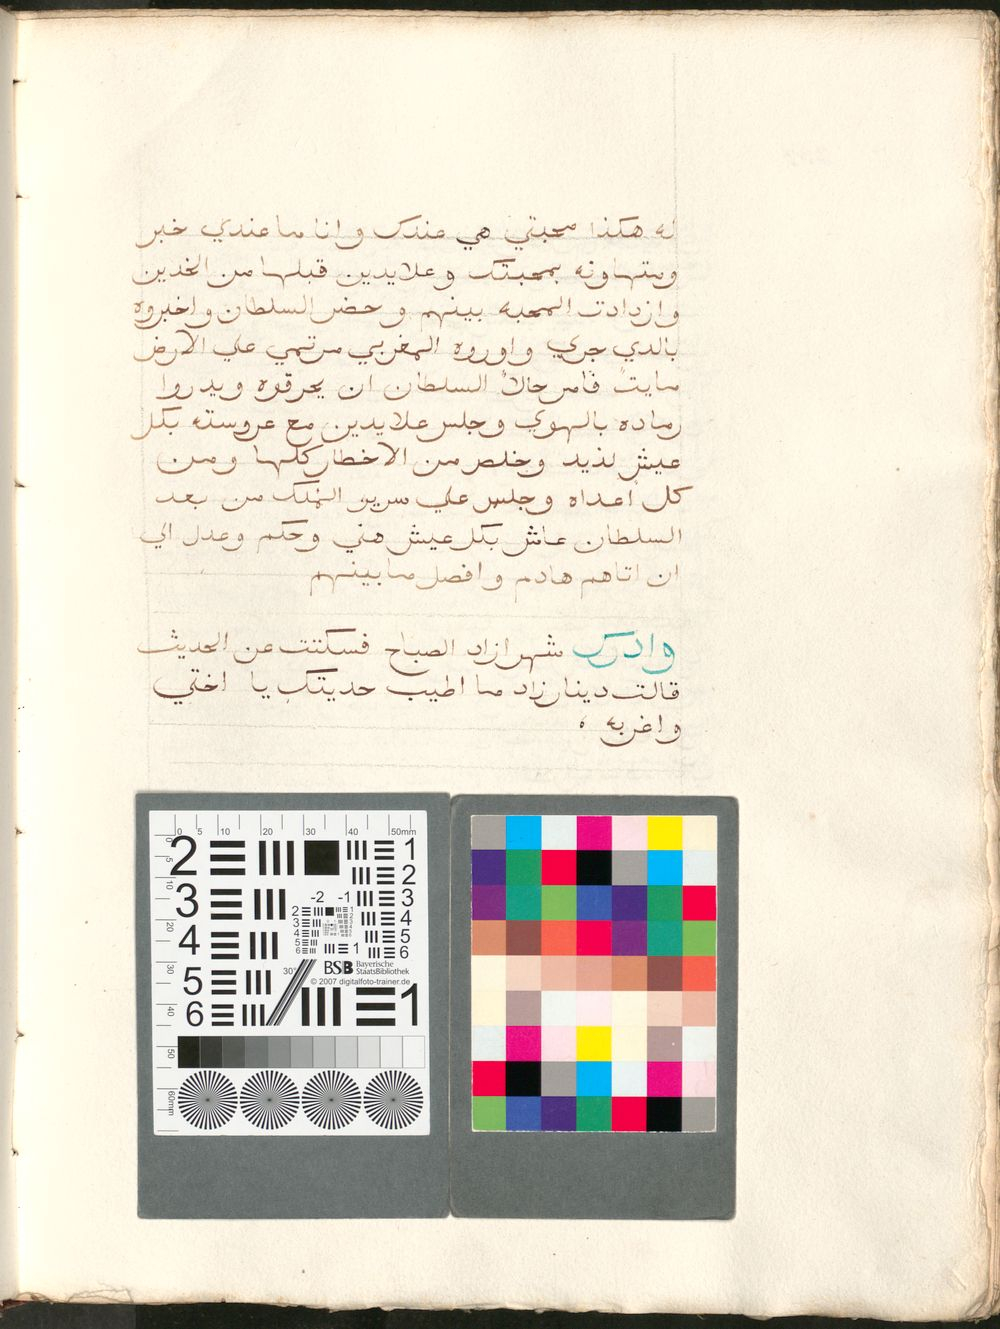 له هكذا محبتي هي عندك وانا ما عندي خبر
ومتهاونه بمحبتك وعلايدين قبلها من الخدين
وازدادت المحبه بينهم وحضر السلطان واخبروه
بالذي جري واوروه المغربي مرتمي علي الارض
مايت فامر حالا السلطان ان يحرقوه ويدروا
رماده بالهوي وجلس علايدين مع عروسته بكل
عيش لذيد وخلص من الاخطار كلها ومن
كل اعداه وجلس علي سرير الملك من بعد
السلطان عاش بكل عيش هني وحكم وعدل الي
ان اتاهم هادم وافصل ما بينهم
وادرك شهرازاد الصباح فسكتت عن الحديث
قالت دينارزاد ما اطيب حديتك يا اختي
واغربه
0 5 10 20 30 40 50mm
2 1
2
-2 -1
3 3
4
4 5
6
5
30°
BSB Bayerische
StaatsBibliothek
© 2007 digitalfoto-trainer.de
6 1